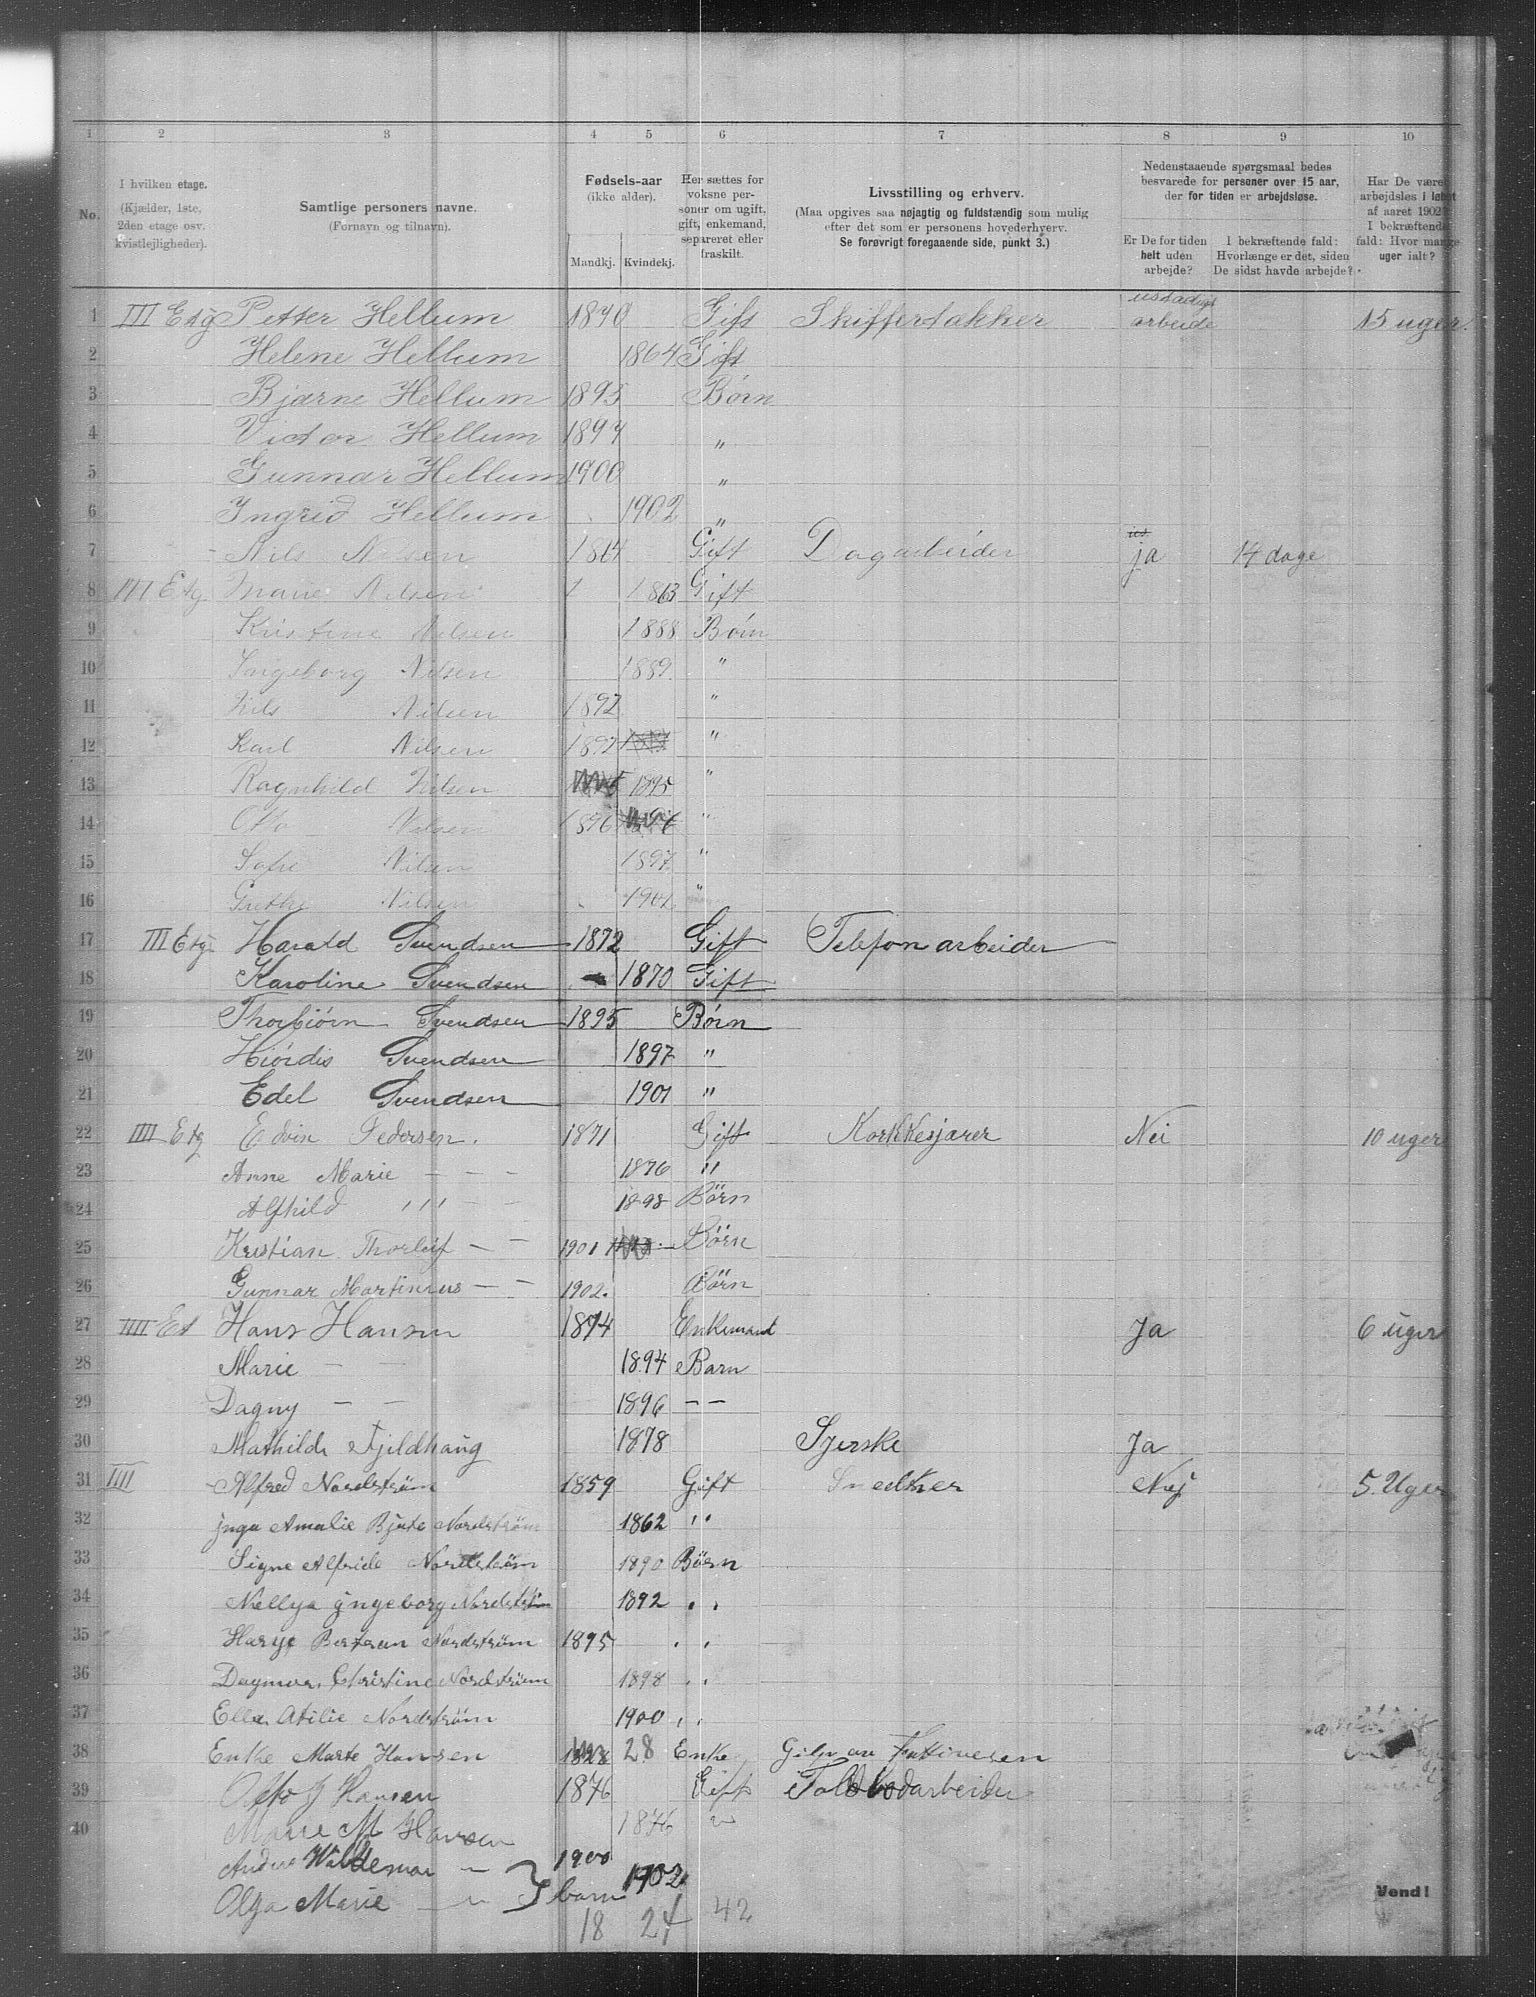 1 2 3 4 5 6 7 8 9 10
No.
I hvilken etage.
(Kjælder, 1ste,
2den etage osv.
kvistlejligheder).
Samtlige personers navne.
(Fornavn og tilnavn).
Fødsels-aar
(ikke alder).
Mandkj. Kvindekj.
Her sættes for
voksne per-
soner om ugift,
gift, enkemand,
separeret eller
fraskilt.
Livsstilling og erhverv.
(Maa opgives saa nøjagtig og fuldstændig som mulig
efter det som er personens hovederhverv.
Se forøvrigt foregaaende side, punkt 3.)
Nedenstaaende spørgsmaal bedes
besvarede for personer over 15 aar,
der for tiden er arbejdsløse.
Er De for tiden
helt uden
arbejde?
I bekræftende fald:
Hvorlænge er det, siden
De sidst havde arbejde?
Har De været
arbejdsløs i løbet
af aaret 1902?
I bekræftende
fald: Hvor mange
uger ialt?
ustadigt
1 III Etg Petter Hellum 1870 Gift Skiffertækker arbeide 15 uger.
2 Helene Hellum 1864 Gift
3 Bjarne Hellum 1895 Børn
4 Victor Hellum 1897 "
5 Gunnar Hellum 1900 "
6 Ingrid Hellum 1902 "
7 Nils Nilsen 1864 Gift Dagarbeider ja 14 dage
8 III Etg Marie Nilsen 1863 Gift
9 Kristine Nilsen 1888 Børn
10 Ingeborg Nilsen 1889 "
11 Nils Nilsen 1892 "
12 Karl Nilsen 1892 "
13 Ragnhild Nilsen 1895 "
14 Otto Nilsen 1896 "
15 Sofie Nilsen 1897 "
16 Grethe Nilsen 1901 "
17 III Etg Harald Svendsen 1872 Gift Telefonarbeider
18 Karoline Svendsen 1870 Gift
19 Thorbiørn Svendsen 1895 Børn
20 Hiørdis Svendsen 1897 "
21 Edel Svendsen 1901 "
22 IIII Etg Edvin Pedersen. 1871 Gift Korkkesjærer Nei 10 uger
23 Anne Marie - - - 1876 "
24 Alfhild ''' - - 1898 Börn
25 Kristian Thorleif - - 1901 Börn
26 Gunnar Martinius - - 1902. Börn
27 IIII Et Hans Hansen 1874 Enkemand Ja 6 uger
28 Marie - - 1894 Barn
29 Dagny - - 1896 - -
30 Mathilde Fjeldhaug 1878 Syerske Ja
31 IIII Alfred Nordström 1859 Gift Snedker Nej 5. Uger
32 jnga Amalie Bjute Nordström 1862 "
33 Signe Alfride Nordström 1890 Börn
34 Nellya jngeborg Nordström 1892 " "
35 Harye Bertran Nordström 1895 " "
36 Dagmar Christine Nordström 1898 " "
37 Ella Otilie Nordström 1900 " "
38 Enke Marte Hansen 1828 28 Enke
39 Otto J Hansen 1876 Gift Toldbodarbeider
40 Marie M Hansen 1876 "
Anders Waldemar - 1900
Olga Marie - " } barn 1902
18 24 42
Vend!